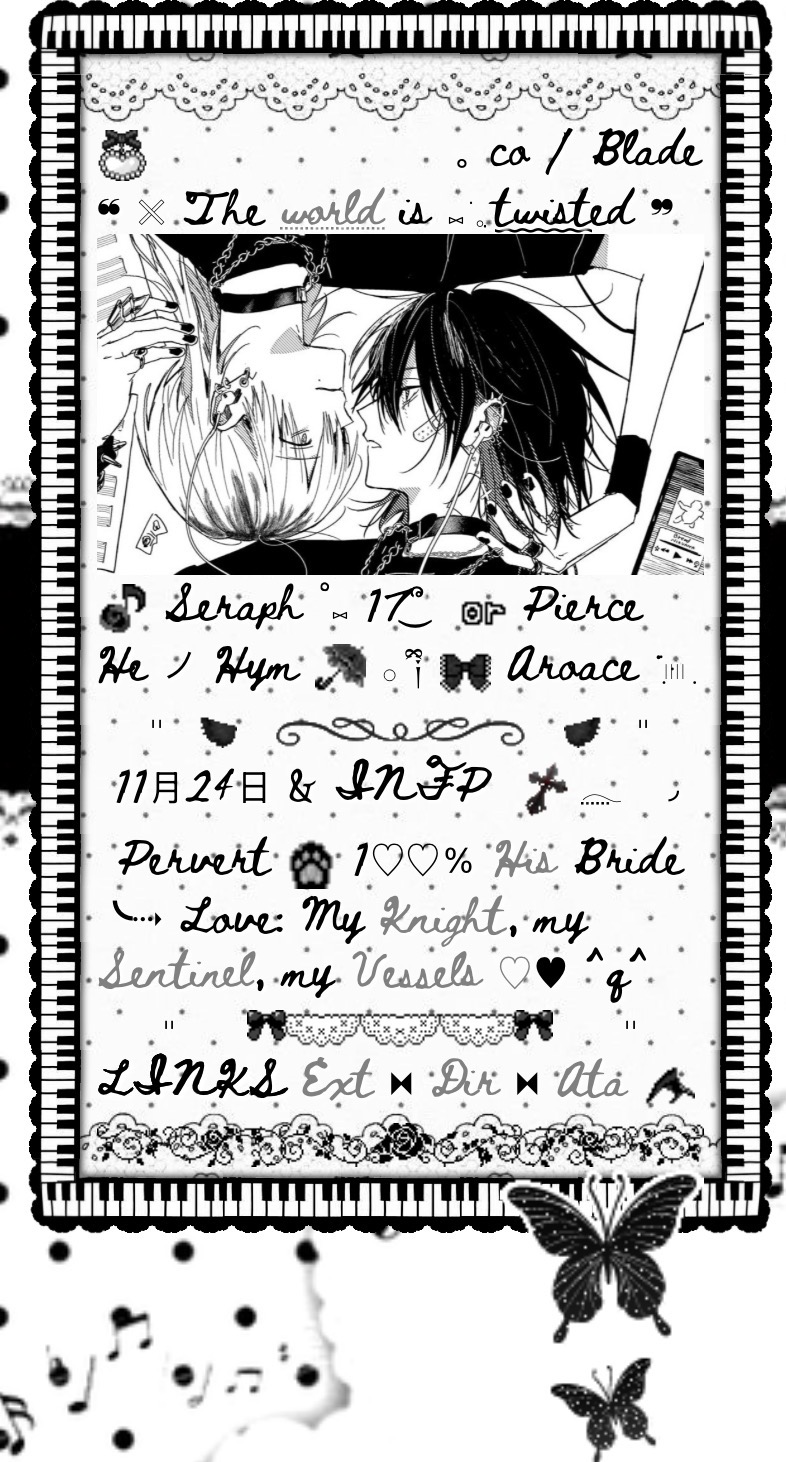 。 co / Blade
❝ ╳ The world is ⑅ twisted ❞
Seraph ° ⋈ 17 or Pierce
He ノ Hym ○ Aroace
" "
11月24日 & INFP
Pervert 1♡♡% His Bride
╰┈➤ Love: My Knight, my
Sentinel, my Vessels ♡♥ ^q^
" "
LINKS Ext ⧓ Dir ⧓ Ata